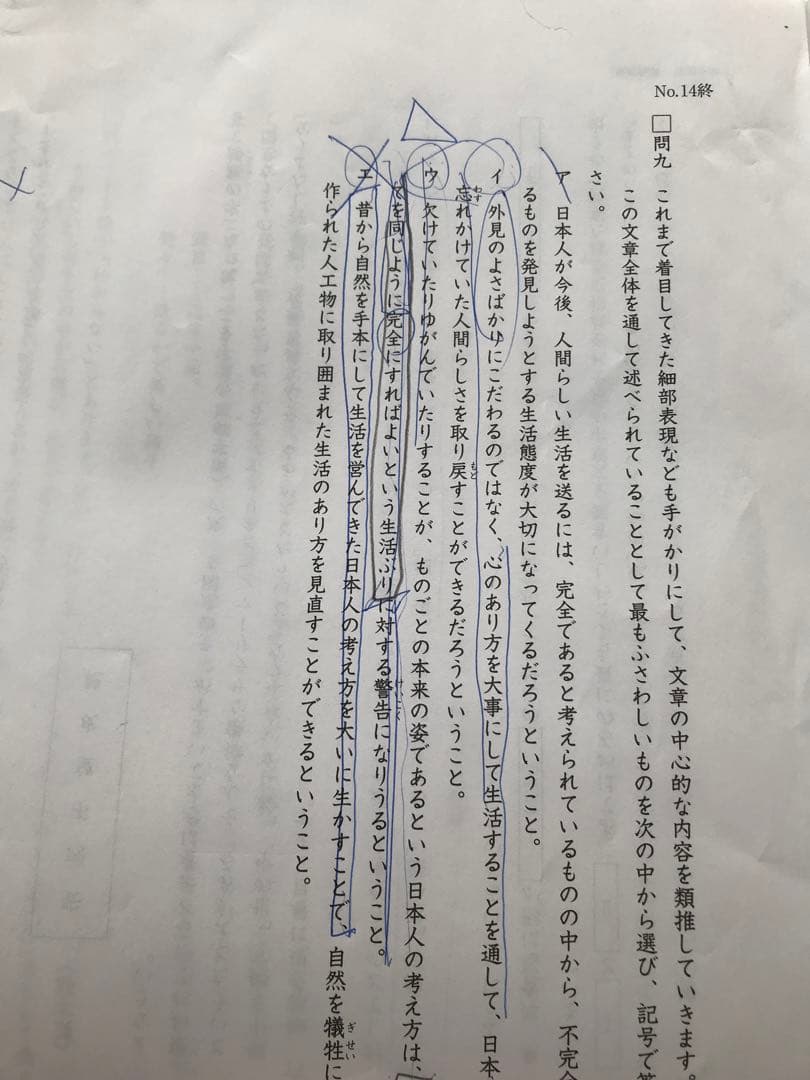 No.14終
□問九 これまで着目してきた細部表現なども手がかりにして、文章の中心的な内容を類推していきます。
この文章全体を通して述べられていることとして最もふさわしいものを次の中から選び、記号で
さい。
ア 日本人が今後、人間らしい生活を送るには、完全であると考えられているものの中から、不完全
るものを発見しようとする生活態度が大切になってくるだろうということ。
イ 外見のよさばかりにこだわるのではなく、心のあり方を大事にして生活することを通して、日本
忘れかけていた人間らしさを取り戻すことができるだろうということ。
ウ 欠けていたりゆがんでいたりすることが、ものごとの本来の姿であるという日本人の考え方は、
てを同じように完全にすればよいという生活ぶりに対する警告になりうるということ。
エ 昔から自然を手本にして生活を営んできた日本人の考え方を大いに生かすことで、自然を犠牲に
作られた人工物に取り囲まれた生活のあり方を見直すことができるということ。